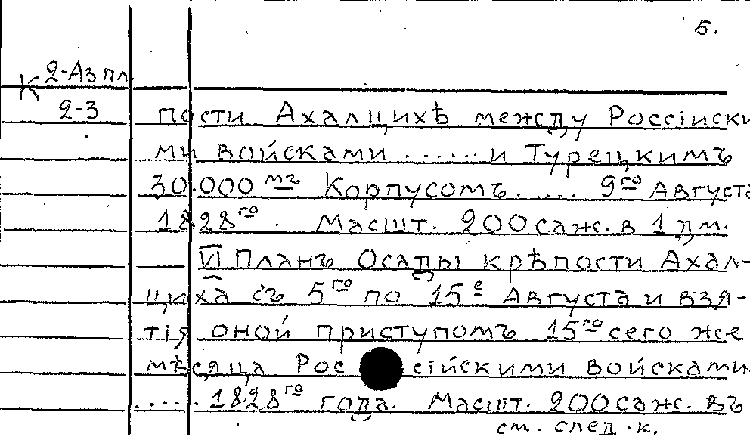 5.
2-Аз пл
К
2-3
пости Ахалцихѣ между Россійски
ми войсками ...... и Турецкимъ
30.000 мъ Корпусомъ ..... 9го Августа
1828го Масшт. 200 саж. в 1 дм.
VI Планъ Осады крѣпости Ахал-
циха съ 5го по 15е Августа и взя-
тія оной приступомъ 15го сего же
мѣсяца Россійскими войсками
..... 1828го года. Масшт. 200 саж. въ
см. след. к.